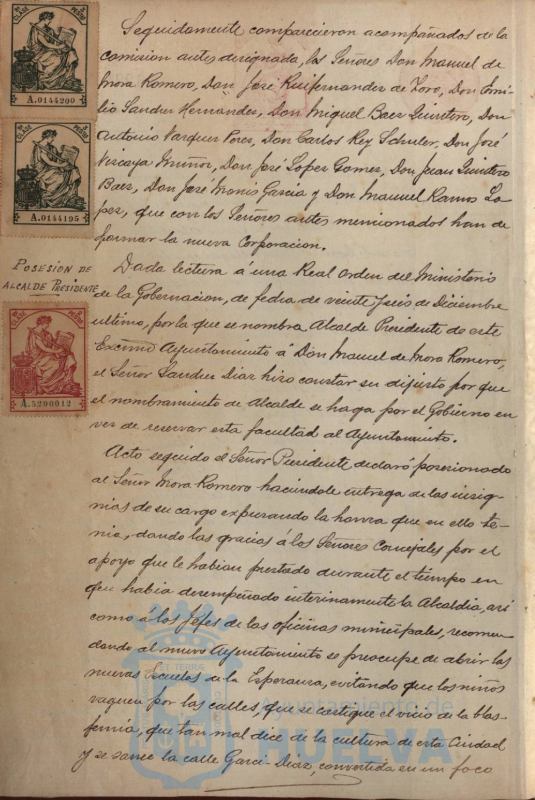 Seguidamente comparecieron acompañados de la
comision antes designada, los Señores Don Manuel de
Mora Romero, Don José Ruifernandez de Toro, Don Emi-
lio Sanchez Hernandez, Don Miguel Baez Quintero, Don
Antonio Vazquez Perez, Don Carlos Rey Schuler, Don José
Vizcaya Muñoz, Don José Lopez Gomez, Don Juan Quintero
Baez, Don José Monis Garcia y Don Manuel Ramos Lo-
pez, que con los Señores antes mencionados han de
formar la nueva Corporacion.
POSESIÓN DE
ALCALDE PRESIDENTE
Dada lectura á una Real orden del Ministerio
de la Gobernacion, de fecha de veinte y seis de Diciembre
ultimo, por la que se nombra Alcalde Presidente de este
Excmo Ayuntamiento á Don Manuel de Mora Romero,
el Señor Sanchez Diaz hizo constar su disjusto por que
el nombramiento de Alcalde se haga por el Gobierno en
vez de reservar esta facultad al Ayuntamiento.
Acto seguido el Señor Presidente declaró posesionado
al Señor Mora Romero haciendole entrega de las insig-
nias de su cargo expresando la honra que en ello te-
nia, dando las gracias á los Señores Concejales por el
apoyo que le habian prestado durante el tiempo en
que habia desempeñado interinamente la Alcaldia, asi
como á los Jefes de las oficinas municipales, recomen-
dando al nuevo Ayuntamiento se preocupe de abrir las
nuevas Escuelas de la Esperanza, evitando que los niños
vaguen por las calles, que se castigue el vicio de la blas-
femia, que tan mal dice de la cultura de esta Ciudad
y se sanee la calle Garci-Diaz, convertida en un foco
A.0144200
A.0144195
A.5200012
Ayuntamiento de
HUELVA